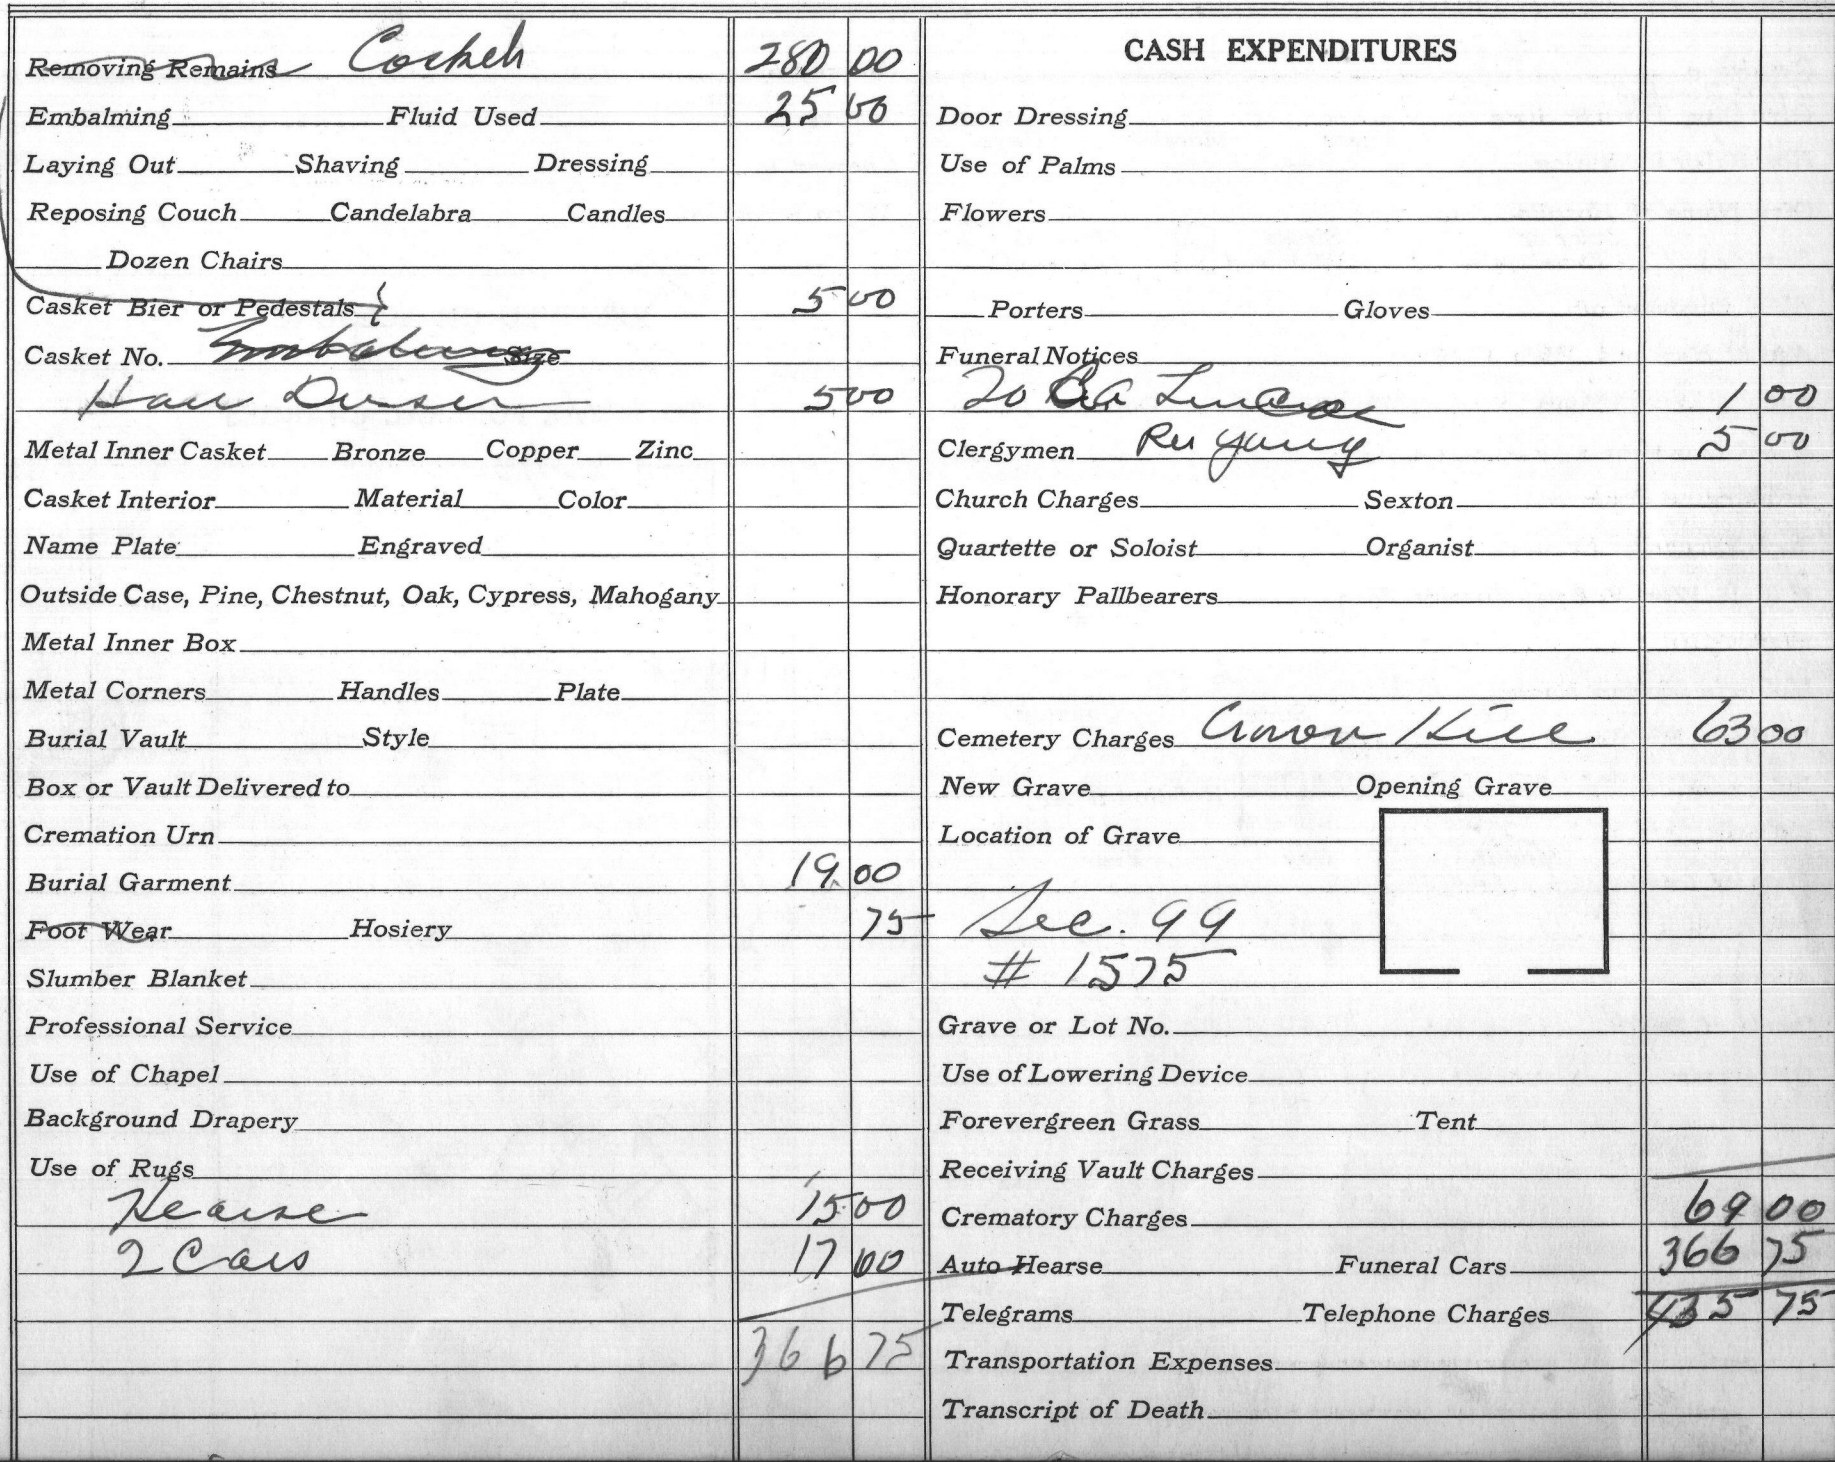 Removing Remains Casket 280 00
Embalming Fluid Used 25 00
Laying Out Shaving Dressing
Reposing Couch Candelabra Candles
Dozen Chairs
Casket Bier or Pedestals 5 00
Casket No. Embalming Size
Hair Dresser 5 00
Metal Inner Casket Bronze Copper Zinc
Casket Interior Material Color
Name Plate Engraved
Outside Case, Pine, Chestnut, Oak, Cypress, Mahogany
Metal Inner Box
Metal Corners Handles Plate
Burial Vault Style
Box or Vault Delivered to
Cremation Urn
Burial Garment 19 00
Foot Wear Hosiery 75
Slumber Blanket
Professional Service
Use of Chapel
Background Drapery
Use of Rugs
Hearse 15 00
2 Cars 17 00
366 75
CASH EXPENDITURES
Door Dressing
Use of Palms
Flowers
Porters Gloves
Funeral Notices
20 1 00
Clergymen Rev Young 5 00
Church Charges Sexton
Quartette or Soloist Organist
Honorary Pallbearers
Cemetery Charges Crown Hill 63 00
New Grave Opening Grave
Location of Grave
Sec. 99
# 1575
Grave or Lot No.
Use of Lowering Device
Forevergreen Grass Tent
Receiving Vault Charges
Crematory Charges 69 00
Auto Hearse Funeral Cars 366 75
Telegrams Telephone Charges 435 75
Transportation Expenses
Transcript of Death